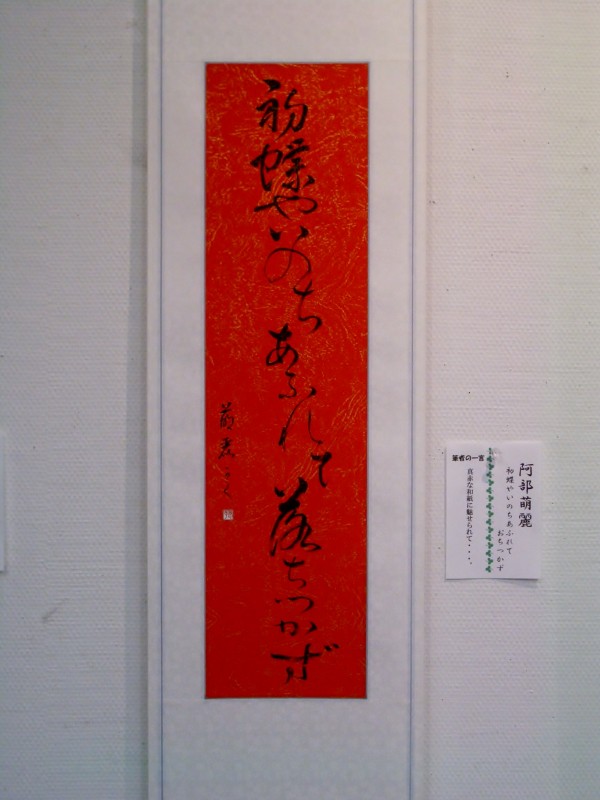 初蝶やいのちあふれて落ちつかず
萌麗
阿部萌麗
初蝶やいのちあふれて
おちつかず
筆者の一言
真赤な和紙に魅せられて・・・・。